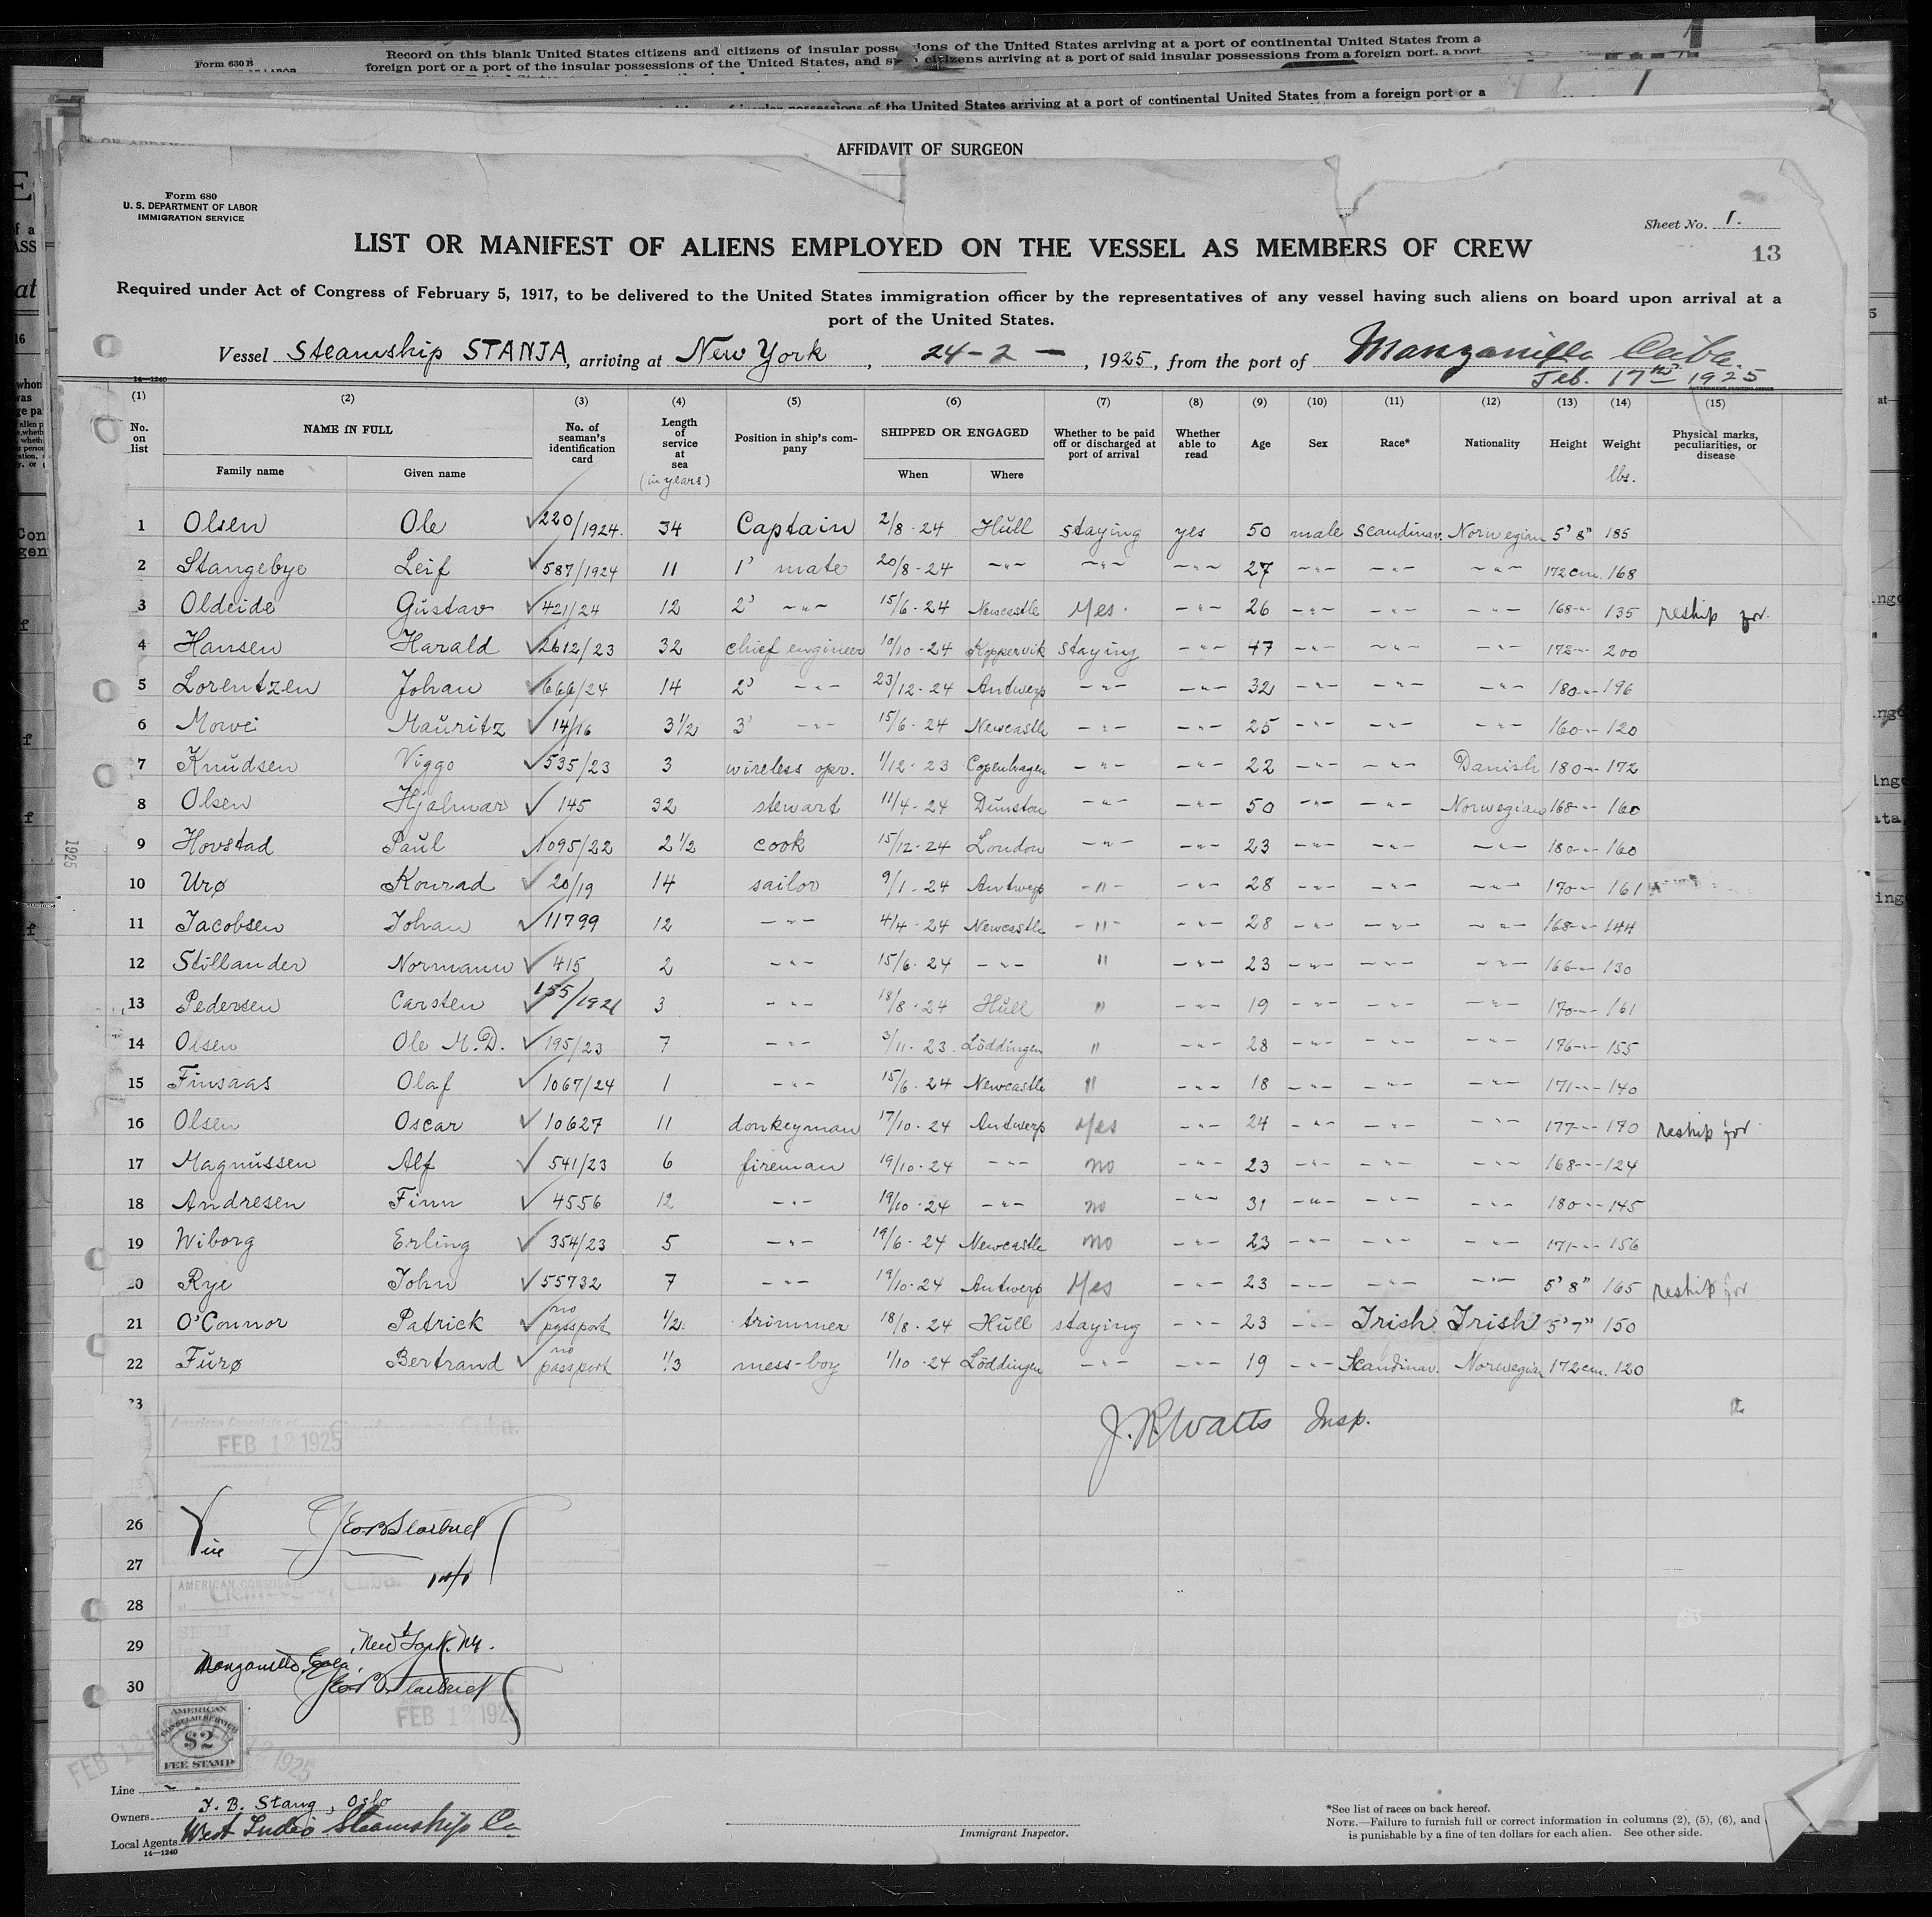 Form 630 B
Record on this blank United States citizens and citizens of insular possessions of the United States arriving at a port of continental United States from a
foreign port or a port of the insular possessions of the United States, and such citizens arriving at a port of said insular possessions from a foreign port, a port
of insular possessions of the United States arriving at a port of continental United States from a foreign port or a
AFFIDAVIT OF SURGEON
Form 680
U. S. DEPARTMENT OF LABOR
IMMIGRATION SERVICE
Sheet No. 1.
13
LIST OR MANIFEST OF ALIENS EMPLOYED ON THE VESSEL AS MEMBERS OF CREW
Required under Act of Congress of February 5, 1917, to be delivered to the United States immigration officer by the representatives of any vessel having such aliens on board upon arrival at a
port of the United States.
Vessel Steamship STANJA, arriving at New York, 24-2-, 1925, from the port of Manzanillo Cuba.
Feb. 17th 1925
14—1240
(1) (2) (3) (4) (5) (6) (7) (8) (9) (10) (11) (12) (13) (14) (15)
No. on list NAME IN FULL Family name Given name No. of seaman's identification card Length of service at sea (in years) Position in ship's company SHIPPED OR ENGAGED When Where Whether to be paid off or discharged at port of arrival Whether able to read Age Sex Race* Nationality Height Weight lbs. Physical marks, peculiarities, or disease
1 Olsen Ole ✓220/1924. 34 Captain 2/8-24 Hull staying yes 50 male Scandinav. Norwegian 5' 8" 185
2 Stangebye Leif ✓587/1924 11 1' mate 20/8-24 -"- -"- -"- 27 -"- -"- -"- 172 cm. 168
3 Oldeide Gustav ✓421/24 12 2' -"- 15/6-24 Newcastle Yes. -"- 26 -"- -"- -"- 168 -"- 135 reship for.
4 Hansen Harald ✓2612/23 32 chief engineer 10/10-24 Koppervik staying -"- 47 -"- -"- -"- 172 -"- 200
5 Lorentzen Johan ✓666/24 14 2' -"- 23/12-24 Antwerp -"- -"- 32 -"- -"- -"- 180 -"- 196
6 Mowi Mauritz ✓14/16 3½ 3' -"- 15/6-24 Newcastle -"- -"- 25 -"- -"- -"- 160 -"- 120
7 Knudsen Viggo ✓535/23 3 wireless opr. 1/12-23 Copenhagen -"- -"- 22 -"- -"- Danish 180 -"- 172
8 Olsen Hjalmar ✓145 32 stewart 11/4-24 Dunston -"- -"- 50 -"- -"- Norwegian 168 -"- 160
9 Hovstad Paul ✓1095/22 2½ cook 15/12-24 London -"- -"- 23 -"- -"- -"- 180 -"- 160
10 Urø Konrad ✓20/19 14 sailor 9/1-24 Antwerp -"- -"- 28 -"- -"- -"- 170 -"- 161
11 Jacobsen Johan ✓11799 12 -"- 4/4-24 Newcastle -"- -"- 28 -"- -"- -"- 168 -"- 144
12 Stillander Normann ✓415 2 -"- 15/6-24 -"- " -"- 23 -"- -"- -"- 166 -"- 130
13 Pedersen Carsten ✓155/1921 3 -"- 18/8-24 Hull " -"- 19 -"- -"- -"- 170 -"- 161
14 Olsen Ole M.D. ✓195/23 7 -"- 3/11-23. Löddingen " -"- 28 -"- -"- -"- 176 -"- 155
15 Finsaas Olaf ✓1067/24 1 -"- 15/6-24 Newcastle " -"- 18 -"- -"- -"- 171 -"- 140
16 Olsen Oscar ✓10627 11 donkeyman 17/10-24 Antwerp Yes -"- 24 -"- -"- -"- 177 -"- 170 reship for
17 Magnussen Alf ✓541/23 6 fireman 19/10-24 -"- no -"- 23 -"- -"- -"- 168 -"- 124
18 Andresen Finn ✓4556 12 -"- 19/10-24 -"- no -"- 31 -"- -"- -"- 180 -"- 145
19 Wiborg Erling ✓354/23 5 -"- 19/6-24 Newcastle no -"- 23 -"- -"- -"- 171 -"- 156
20 Rye John ✓55732 7 -"- 19/10-24 Antwerp Yes -"- 23 -"- -"- -"- 5' 8" 165 reship for
21 O'Connor Patrick ✓no passport ½ trimmer 18/8-24 Hull staying -"- 23 -"- Irish Irish 5' 7" 150
22 Furø Bertrand ✓no passport ⅓ mess-boy 1/10-24 Löddingen -"- -"- 19 -"- Scandinav. Norwegian 172 cm. 120
23
J. R. Watts Insp.
FEB 12 1925
26
Vice
27
AMERICAN CONSULATE
28
SEEN
29 New York. NY.
Manzanillo, Cuba,
30
FEB 12 1925
AMERICAN
CONSULAR SERVICE
$2
FEE STAMP
FEB 12 1925
1925
Line
Owners J. B. Stang, Oslo
Local Agents West India Steamship Co
14—1240
Immigrant Inspector.
*See list of races on back hereof.
NOTE.—Failure to furnish full or correct information in columns (2), (5), (6), and
is punishable by a fine of ten dollars for each alien. See other side.